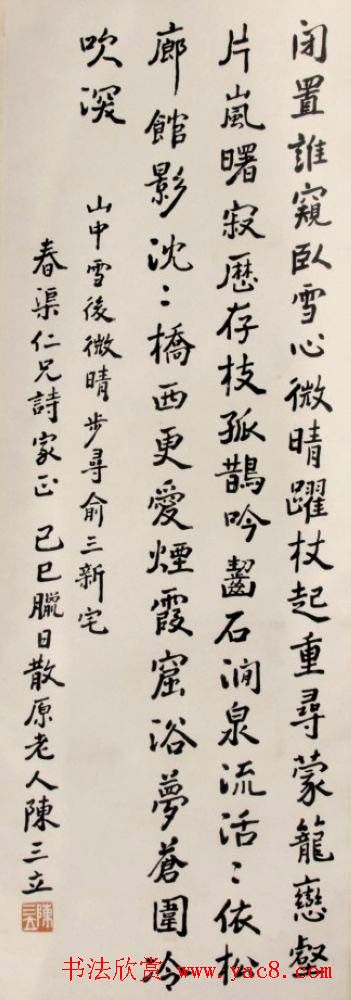 閉置誰窺臥雪心微晴躍杖起重尋蒙籠戀壑
片嵐曙寂歷存枝孤鵲吟齧石澗泉流活〻依松
廊館影沈〻橋西更愛煙霞窟浴夢蒼圍冷
吹深
山中雪後微晴步尋俞三新宅
春渠仁兄詩家正 己巳臘日散原老人陳三立
书法欣赏 www.yac8.com